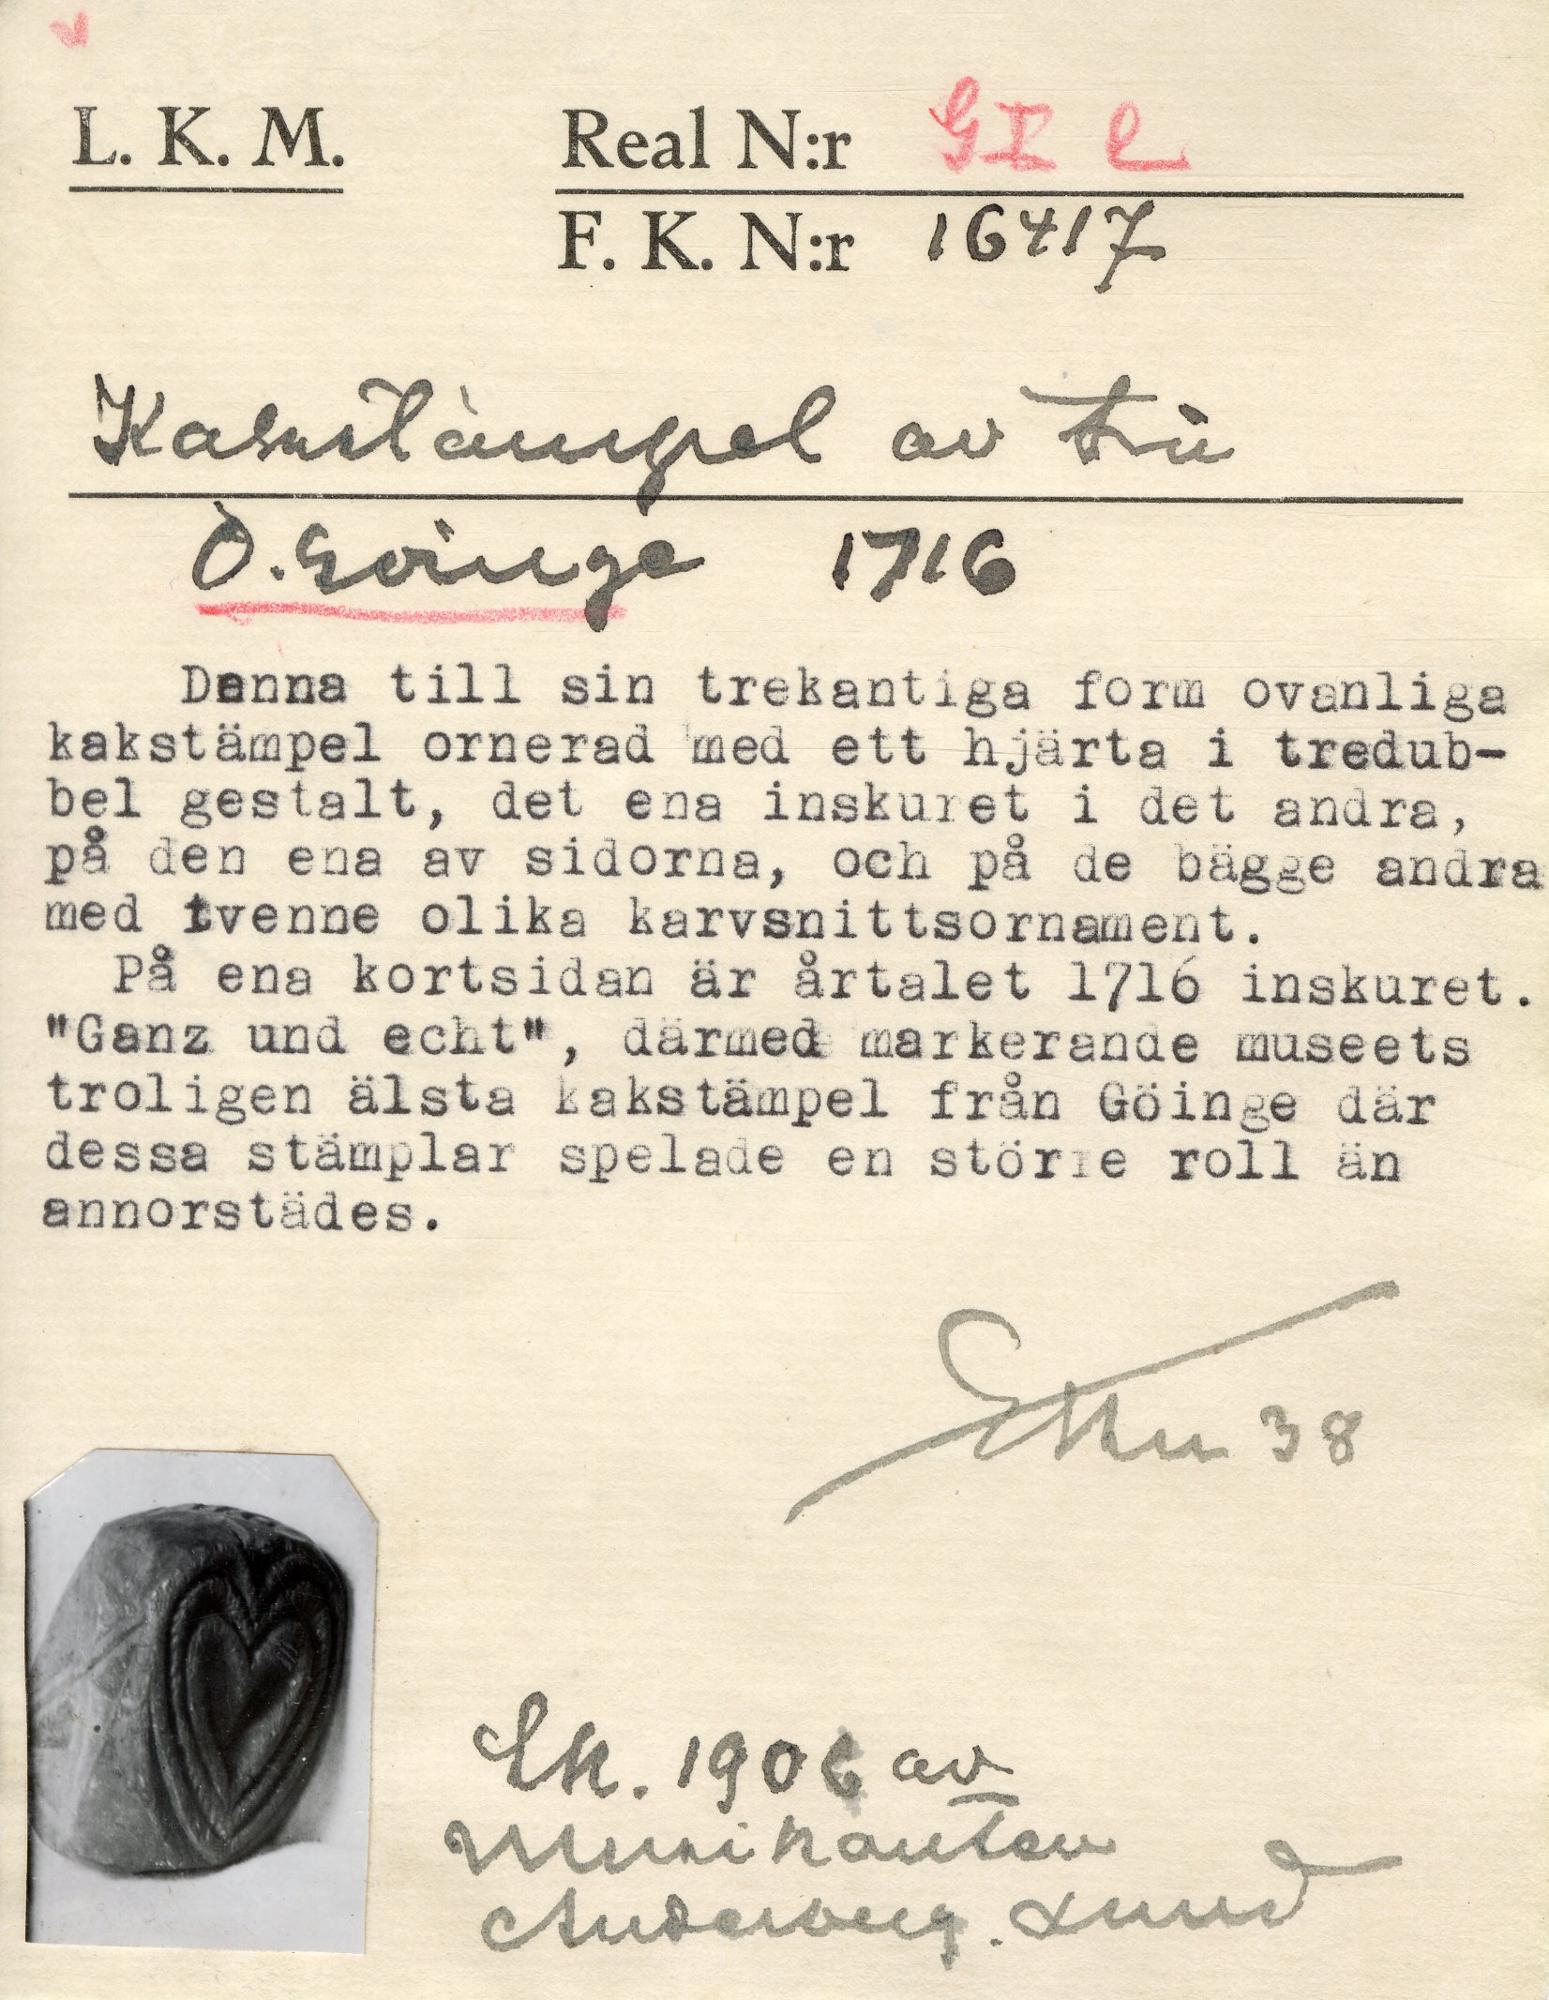 L. K. M.
Real N:r GI e
F. K. N:r 16417
Kakstämpel av trä
Ö. Göinge 1716
Denna till sin trekantiga form ovanliga
kakstämpel ornerad med ett hjärta i tredub-
bel gestalt, det ena inskuret i det andra,
på den ena av sidorna, och på de bägge andra
med tvenne olika karvsnittsornament.
På ena kortsidan är årtalet 1716 inskuret.
"Ganz und echt", därmed markerande museets
troligen älsta kakstämpel från Göinge där
dessa stämplar spelade en större roll än
annorstädes.
38
Sk. 1906 av
Musikanten
Anderberg. Lund